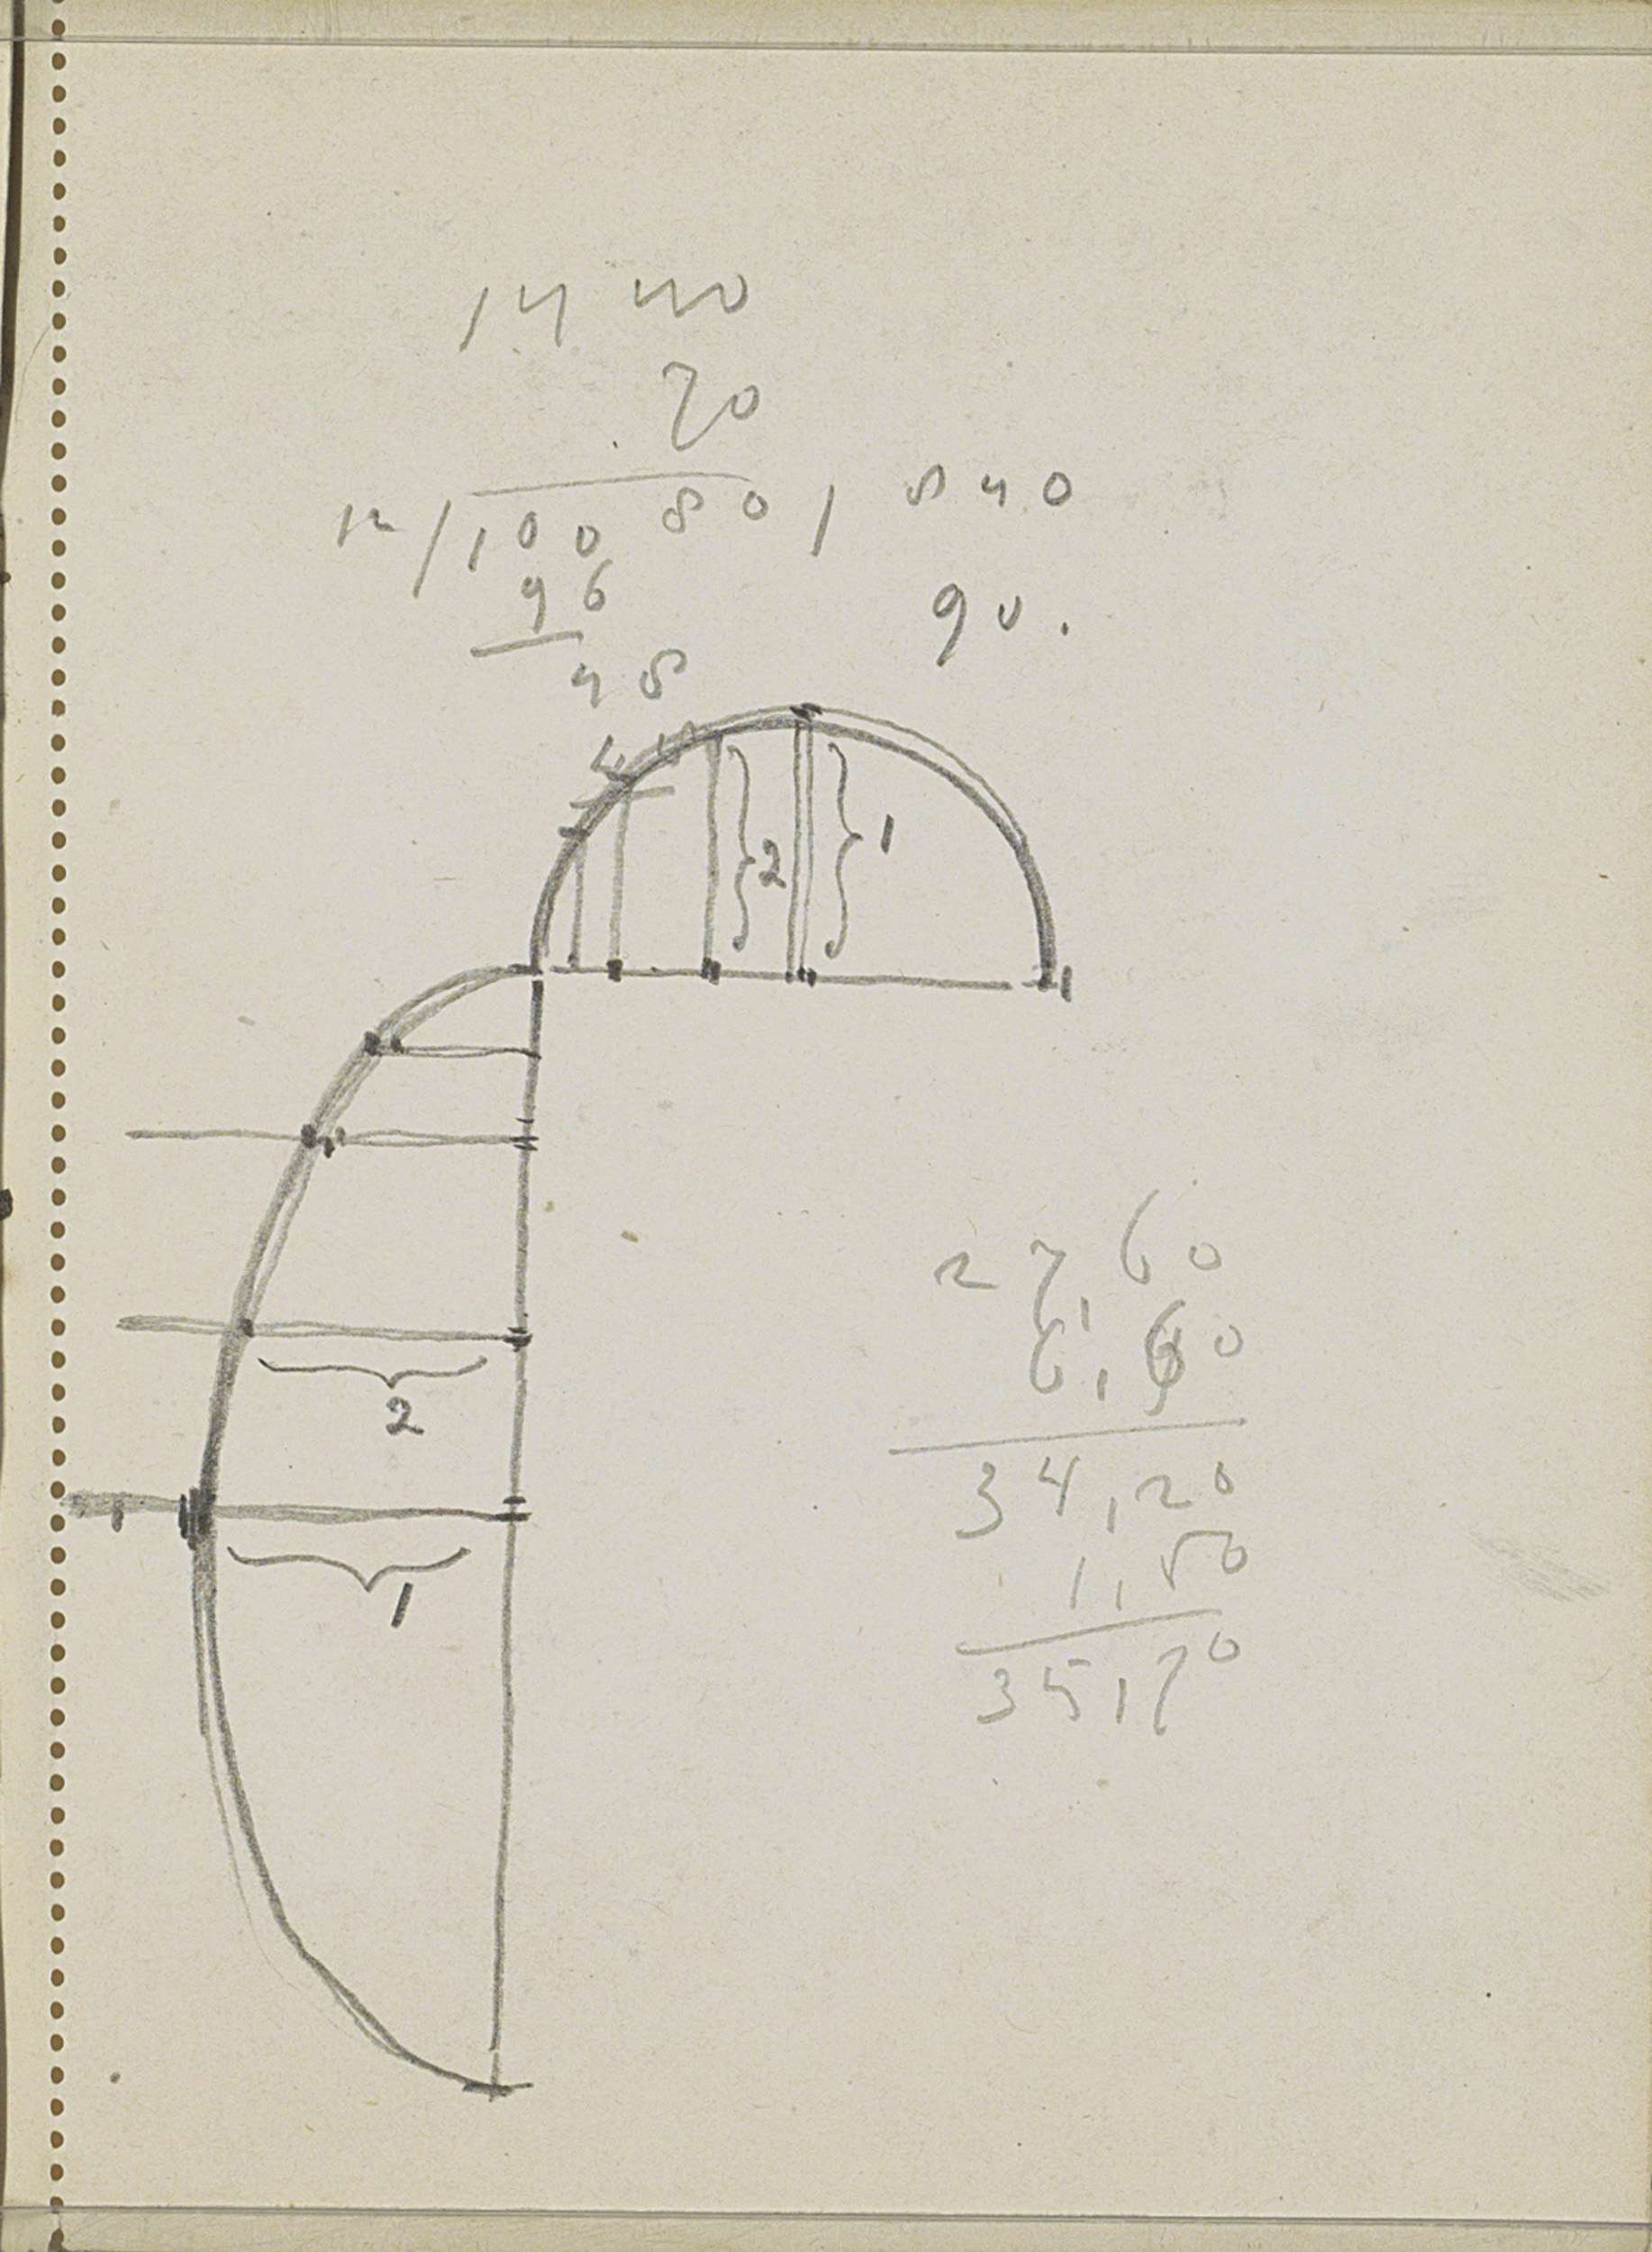 1440
70
12/10080/840
96
90.
48
48
2
1
27,60
6,60
2
34,20
1,50
1
35,70